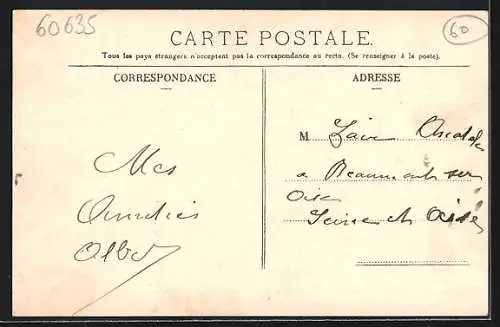 60635
60
CARTE POSTALE.
Tous les pays étrangers n'acceptent pas la correspondance au recto. (Se renseigner à la poste).
CORRESPONDANCE
ADRESSE
Mes
Amitiés
M
a Beaumont sur
Oise
Seine et Oise